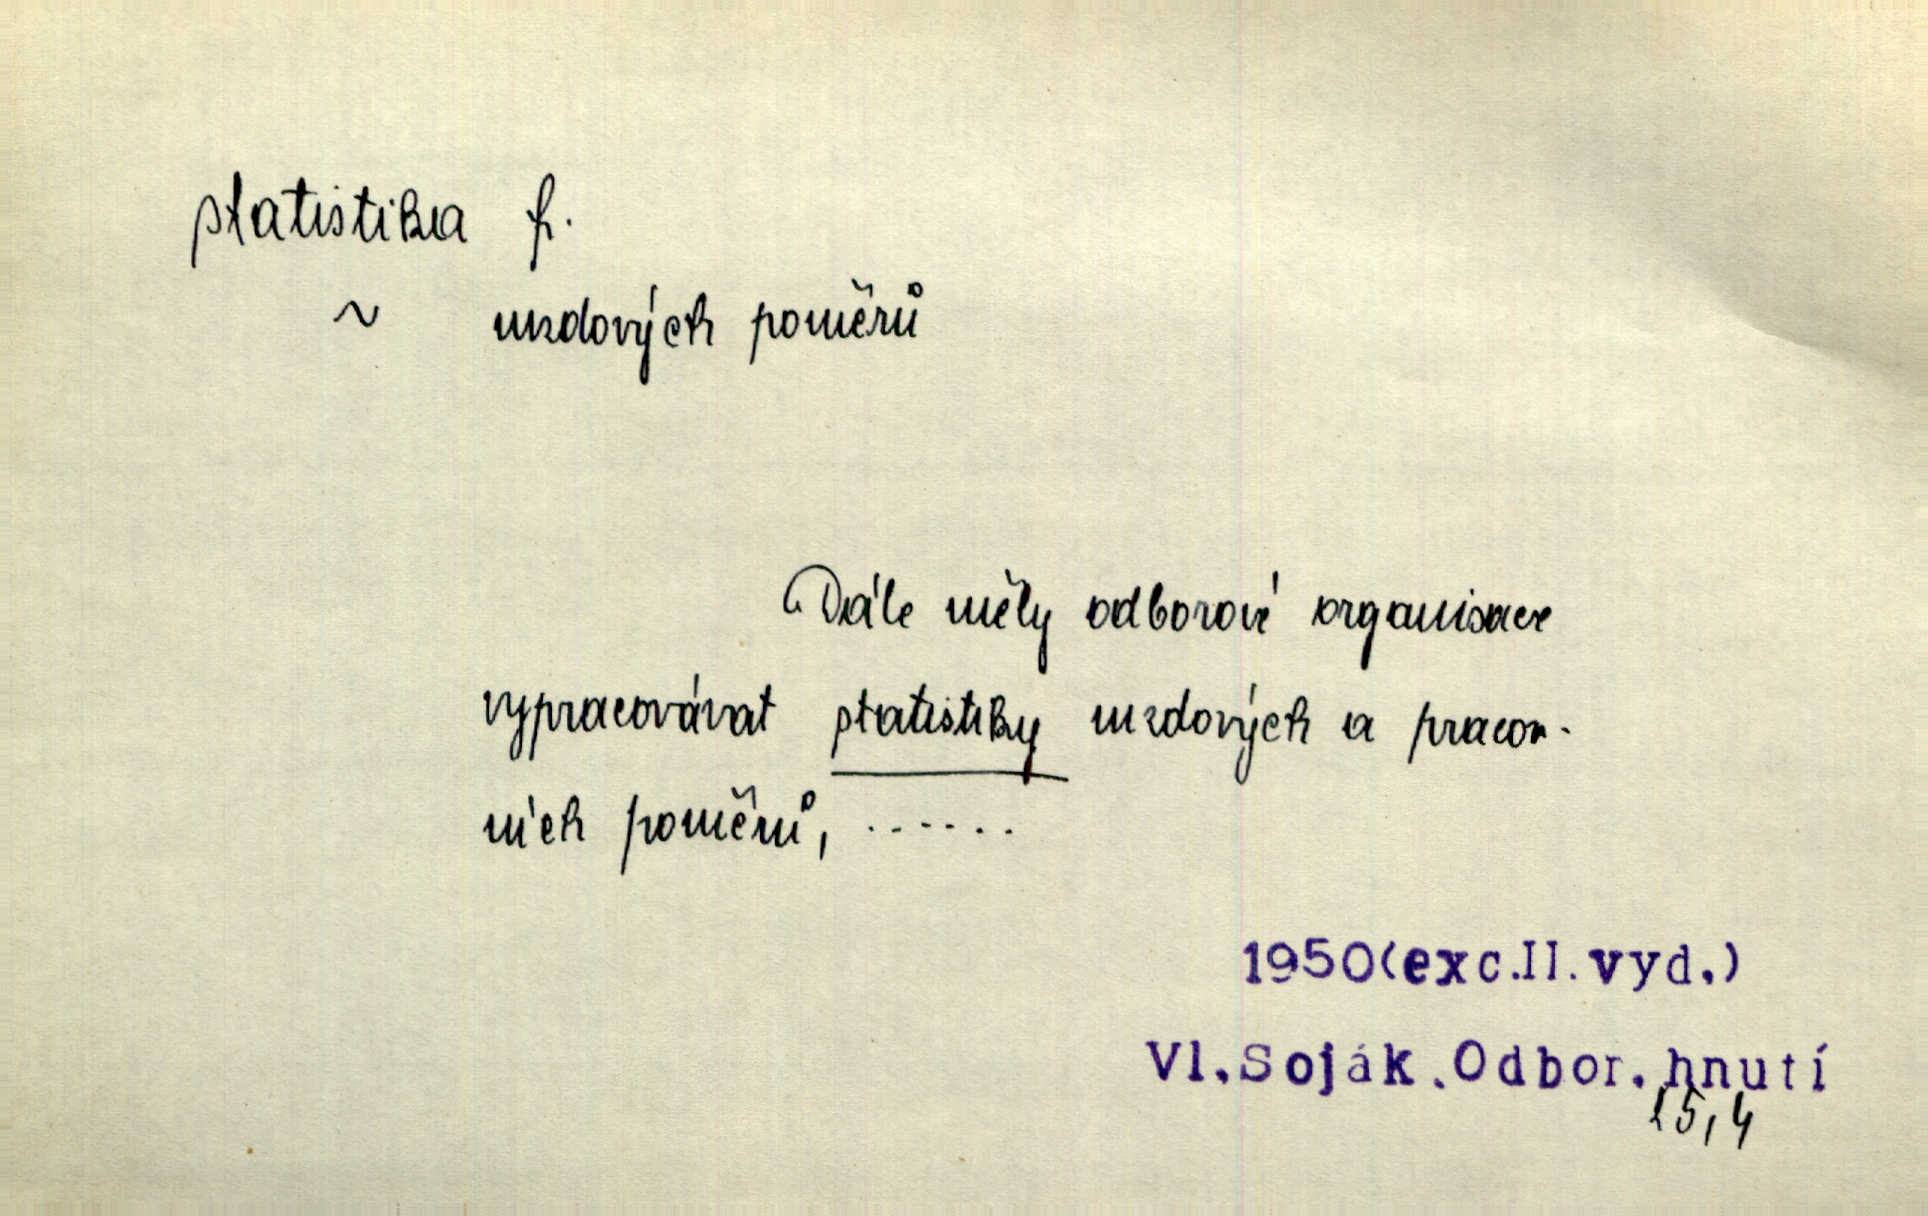 statistika f.
~ mzdových poměrů
Dále měly odborové organisace
vypracovávat statistiky mzdových a pracov-
ních poměrů, ......
1950(exc.II.vyd.)
Vl.Soják.Odbor.hnutí
15,4